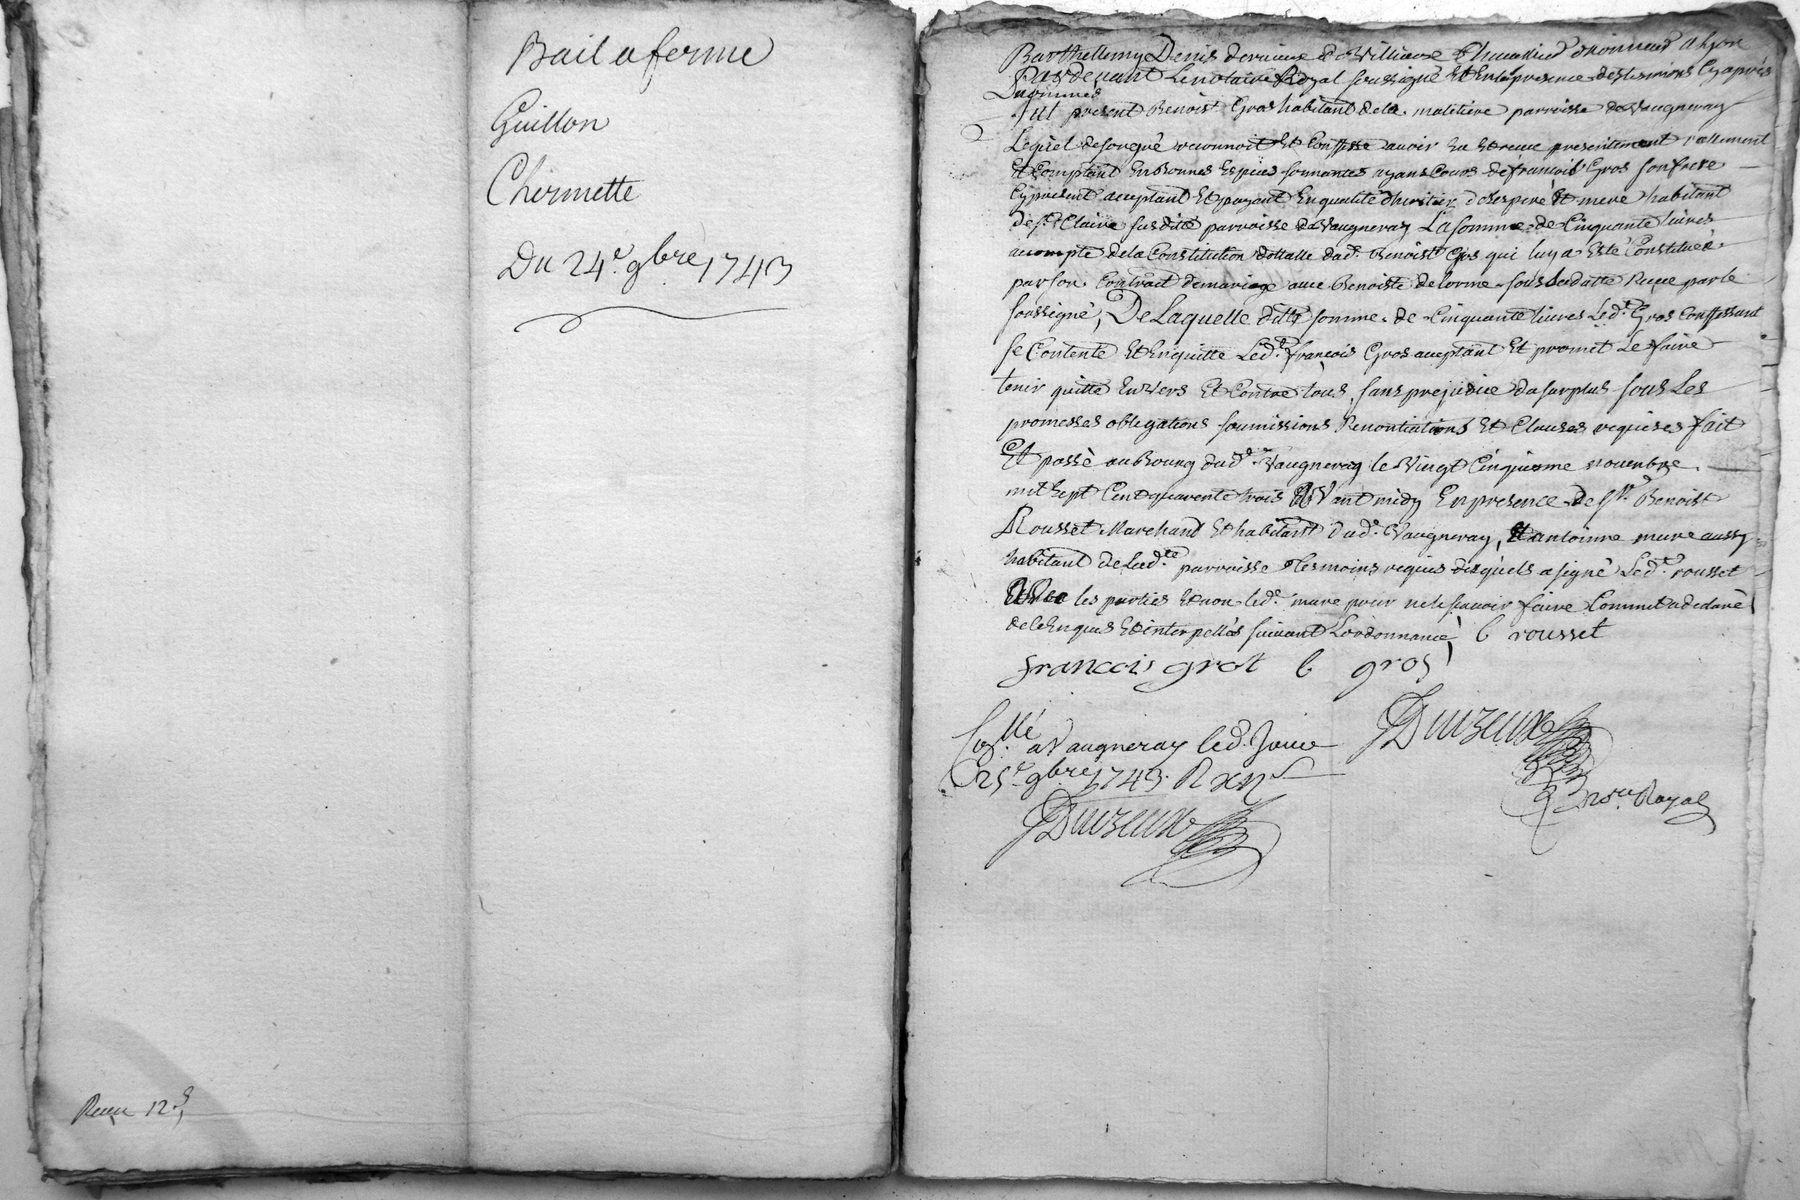 Bail a ferme
Guillon
Chermette
Du 24.e 9bre 1743
Receu 12 s
Barthellemy Denis Chevalier d'honneur a Lyon
Pardevant Le notaire Royal soussigné Et En la presence des tesmoins Cy apres
Denommés
fut present Benoist Gros habitant de la malitiere parroisse de Vaugneray
Lequel de son gré reconnoit Et Confesse avoir Eu Et receu presentement reallement
Et Comptant En Bonnes Especes sonnantes ayans Cours de françois Gros son frere
Cy present acceptant Et payant En qualité d'heritier de ses pere Et mere habitant
de st Claire susditte parroisse de Vaugneray La somme de Cinquante livres
a compte de la Constitution dottalle dud. Benoist Gros qui luy a Esté Constituée
par son Contrait de mariage avec Benoiste delorme sous sa datte Receu par le
soussigné, De Laquelle ditte somme de Cinquante livres Led.t Gros Confessant
se Contente Et En quitte Led.t françois Gros acceptant Et promet Le faire
tenir quitte Envers Et Contre tous, sans prejudice du surplus sous Les
promesses obligations soumissions Renontiations Et Clauses requises fait
Et passé au Bourg dud. Vaugneray le Vingt Cinquieme novembre
mil sept Cent quarente trois Avant midy En presence de Sr. Benoist
Rousset Marchand Et habitant dud. Vaugneray, Et antoinne mure aussy
habitant de lad.te parroisse tesmoins requis desquels a signé Led.t rousset
Avec les parties Et non led. mure pour ne le scavoir faire Comme il a declaré
de ce Enquis Et interpellés suivant Lordonnance b rousset
francois grot b gros
Coll.lé a Vaugneray led. Jour
25e 9bre 1743. R
Duizeux
Duizeux
nore. Royal